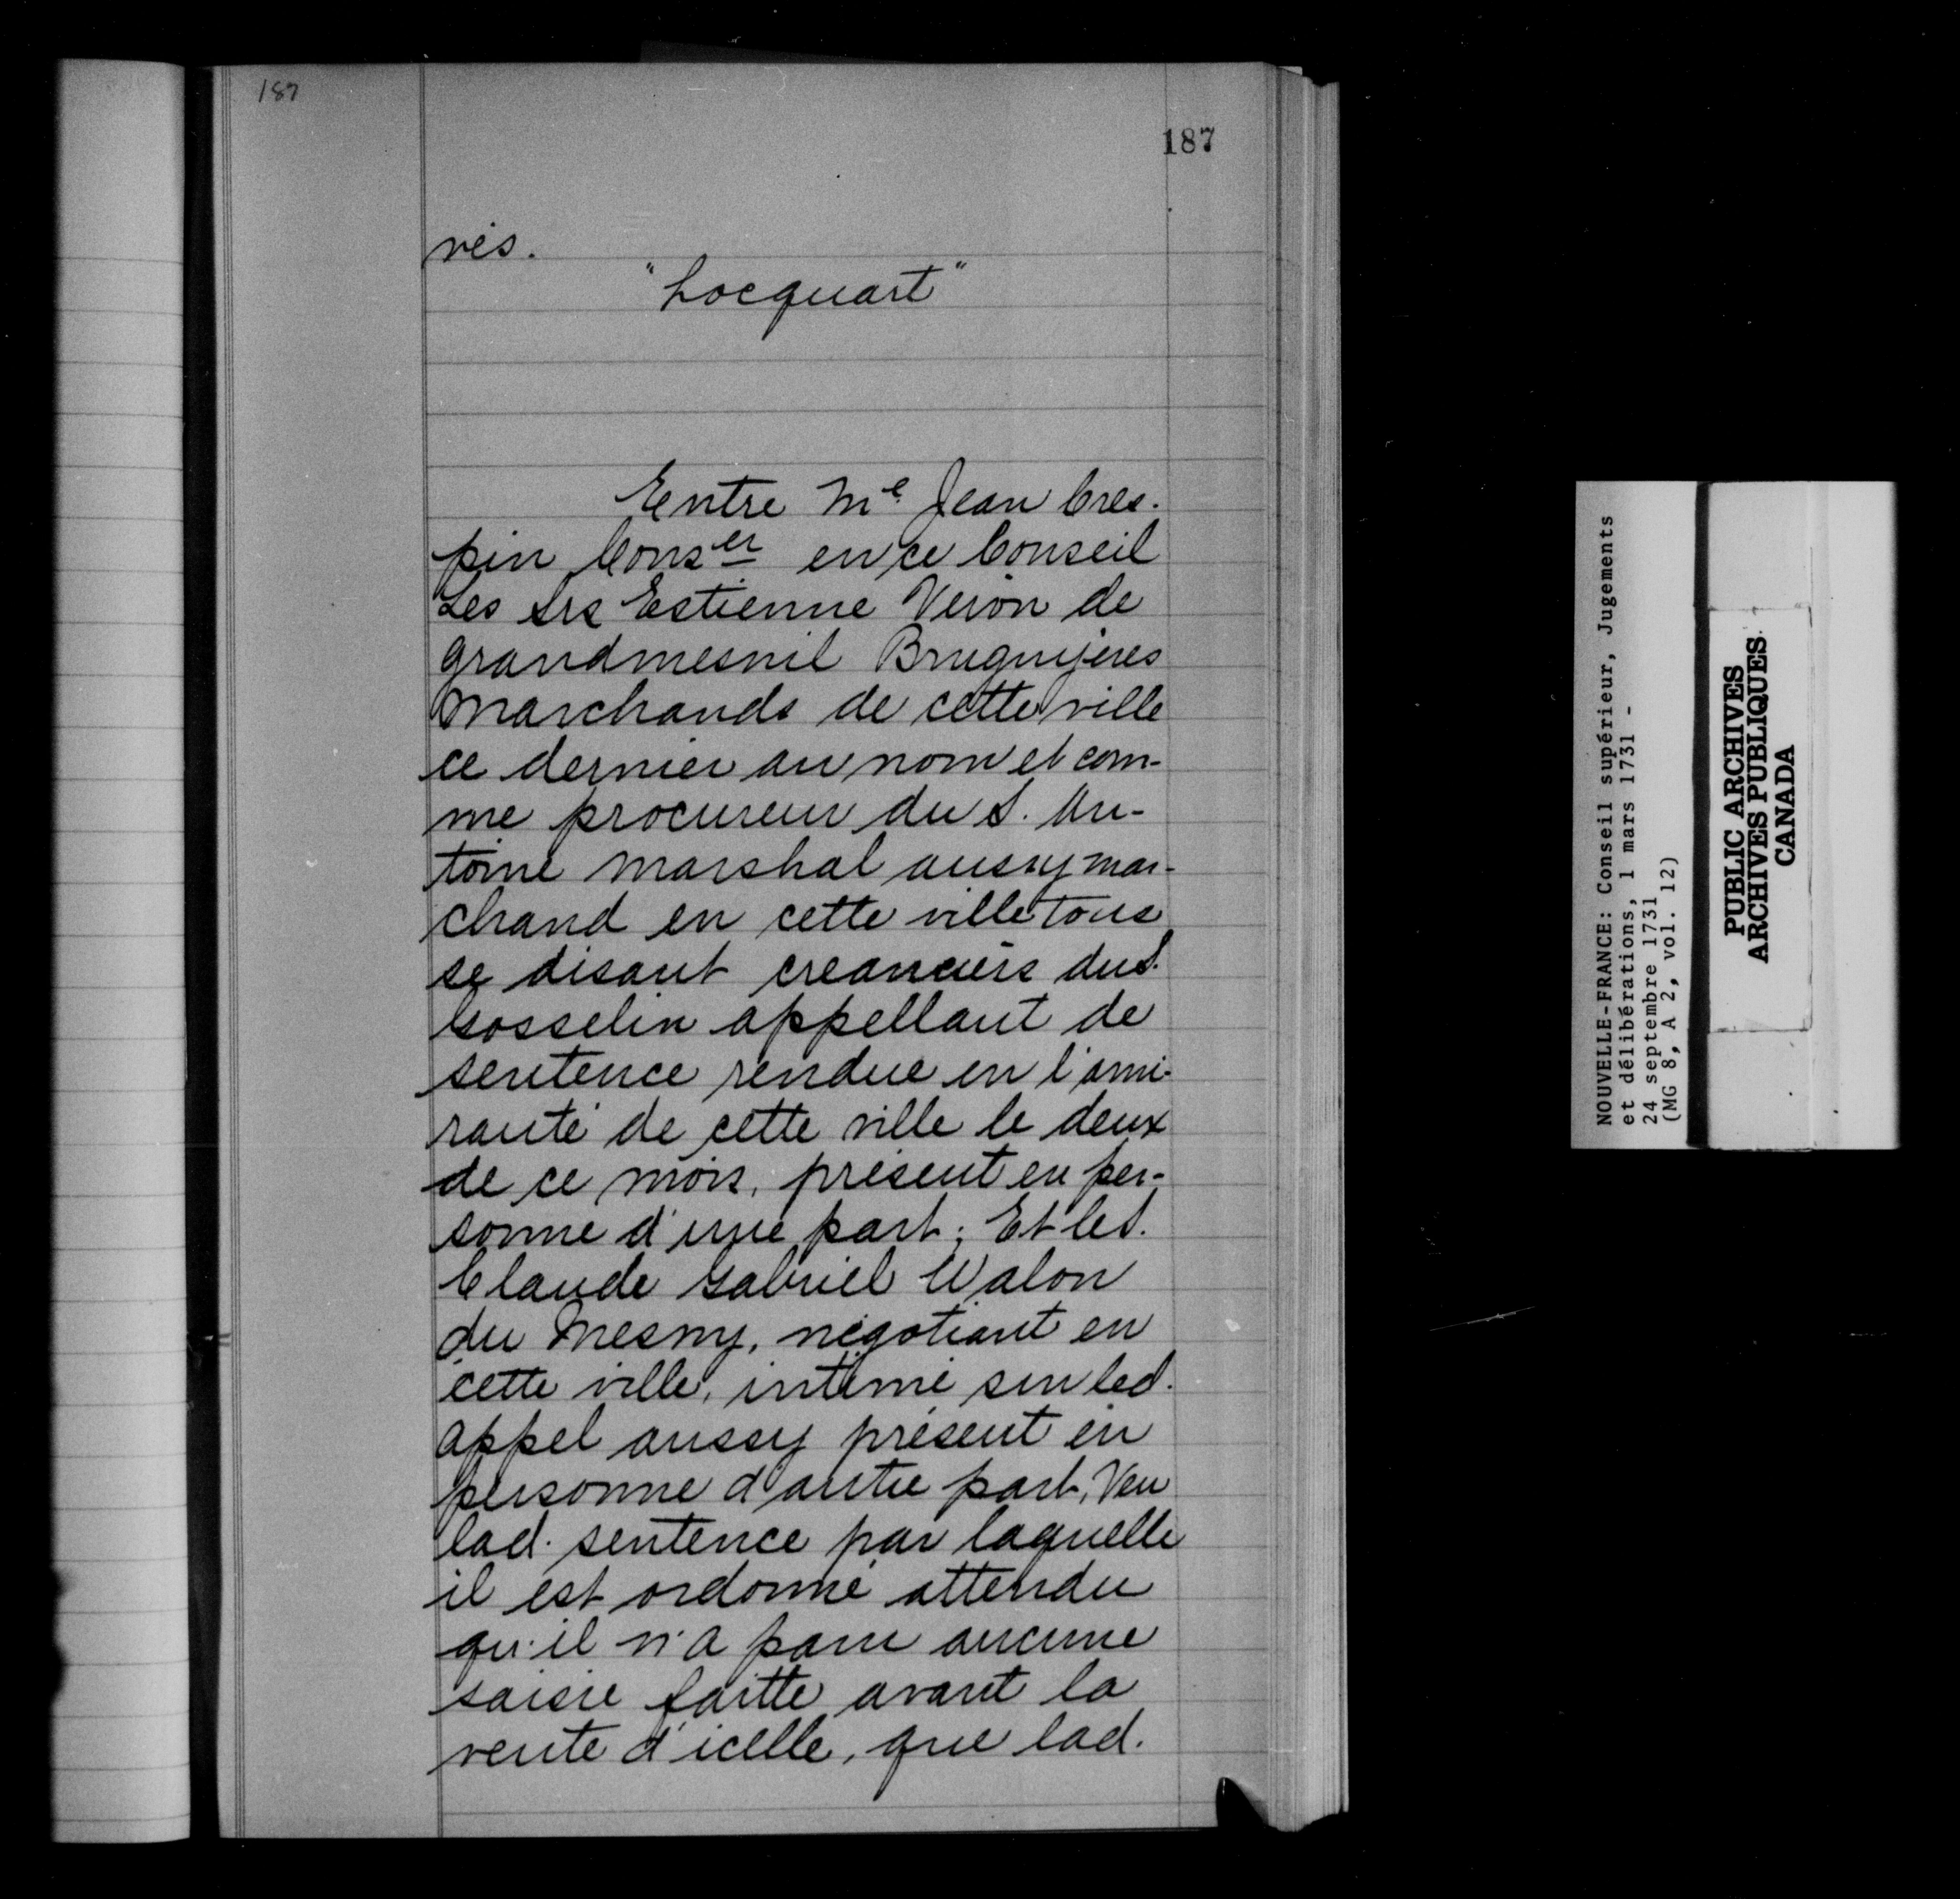 187
187
vés.
"Hocquart"
Entre Me Jean Cres-
pin Conser en ce Conseil
Les Srs Estienne Veron de
Grandmesnil Bruguyeres
Marchands de cette ville
ce dernier au nom et com-
me procureur du S. An-
toine Marshal aussy mar-
chand en cette ville tous
se disant creanciers du S.
Gosselin appellant de
sentence rendue en l'ami-
rauté de cette ville le deux
de ce mois, présent en per-
sonne d'une part; Et le S.
Claude Gabriel Walon
du Mesny, négotiant en
cette ville, intimé sur led.
appel aussy présent en
personne d'autre part, Veu
lad. sentence par laquelle
il est ordonné attendu
qu'il n'a paru aucune
saisie faitte avant la
vente d'icelle, que lad.
NOUVELLE-FRANCE: Conseil supérieur, Jugements
et délibérations, 1 mars 1731 -
24 septembre 1731
(MG 8, A 2, vol. 12)
PUBLIC ARCHIVES
ARCHIVES PUBLIQUES
CANADA